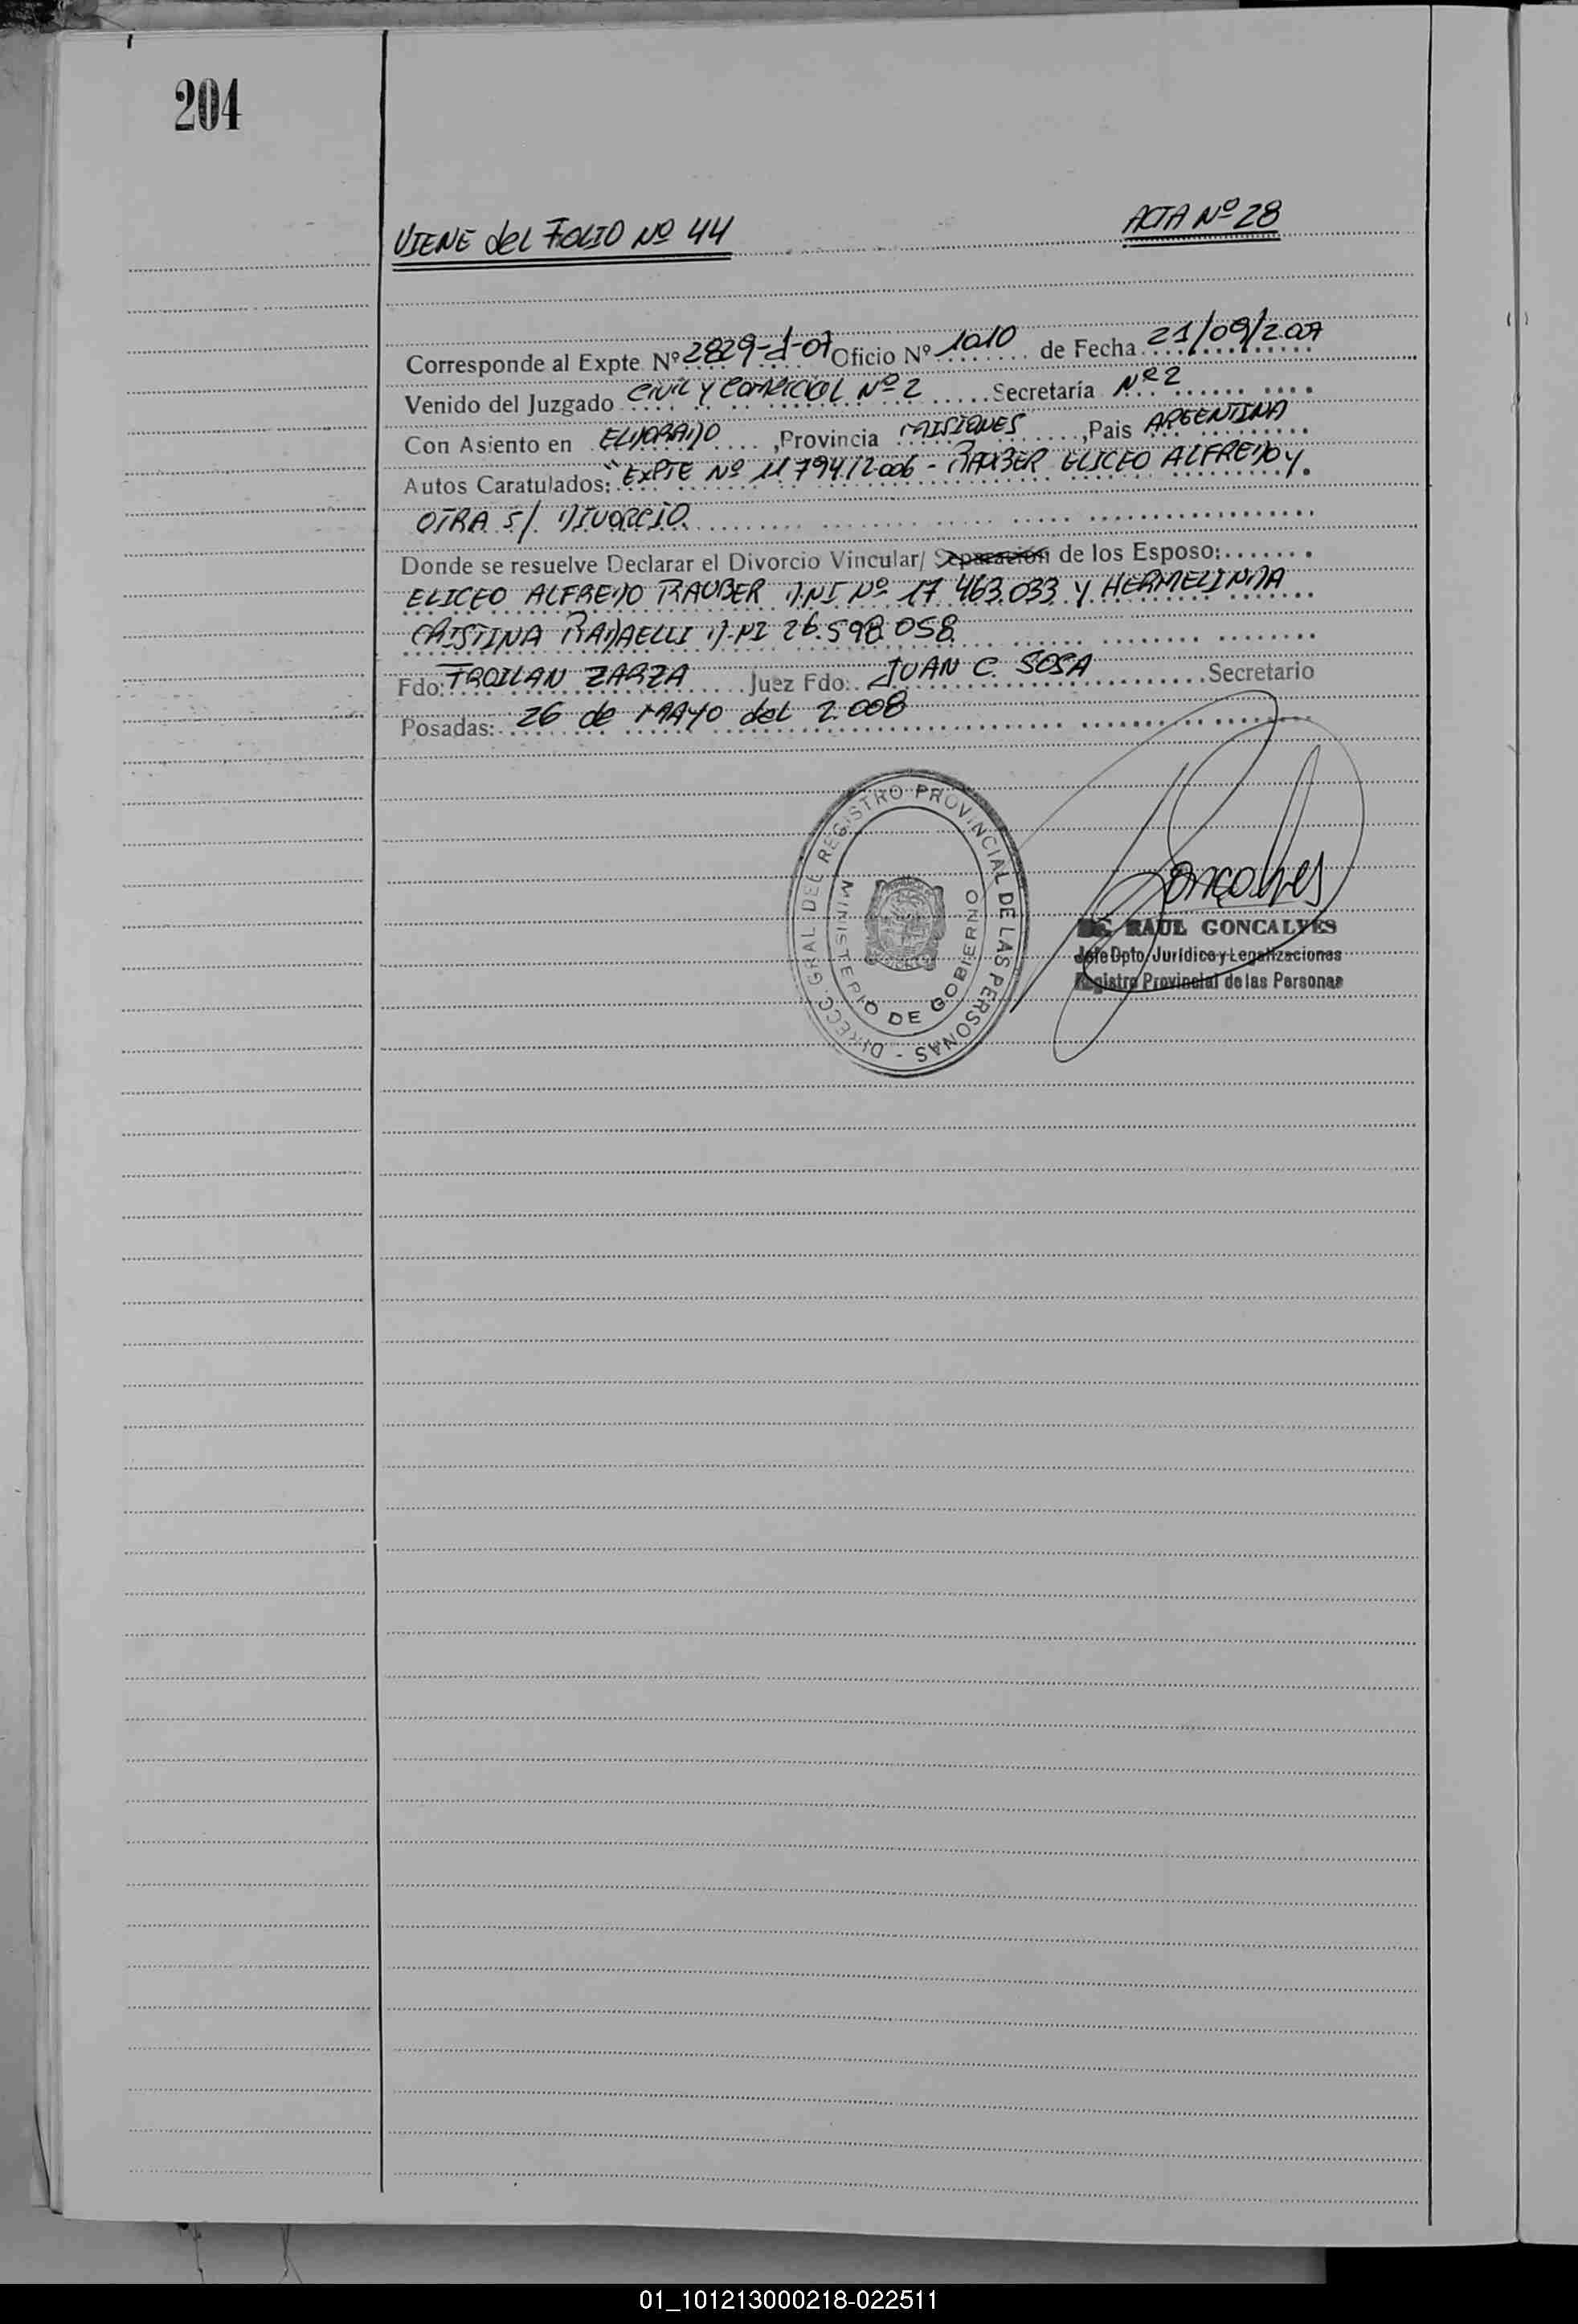 204
VIENE del FOLIO Nº 44 ACTA Nº 28
Corresponde al Expte. Nº 2829-d-07 Oficio Nº 1010 de Fecha 21/09/2007
Venido del Juzgado CIVIL Y COMERCIAL Nº 2 Secretaría Nº 2
Con Asiento en ELDORADO, Provincia MISIONES, Pais ARGENTINA
Autos Caratulados: "EXPTE Nº 11794/2006 - RAUBER ELICEO ALFREDO Y
OTRA S/ DIVORCIO.
Donde se resuelve Declarar el Divorcio Vincular/ Separación de los Esposo:
ELICEO ALFREDO RAUBER D.NI Nº 17.463.033 Y HERMELINDA
CRISTINA RADAELLI D.NI 26.598.058
Fdo: FROILAN ZARZA Juez Fdo: JUAN C. SOSA Secretario
Posadas: 26 de MAYO del 2.008
DIRECC. GRAL DEL REGISTRO PROVINCIAL DE LAS PERSONAS -
MINISTERIO DE GOBIERNO
Goncalves
RAUL GONCALVES
Jefe Dpto. Jurídico y Legalizaciones
Registro Provincial de las Personas
01_101213000218-022511